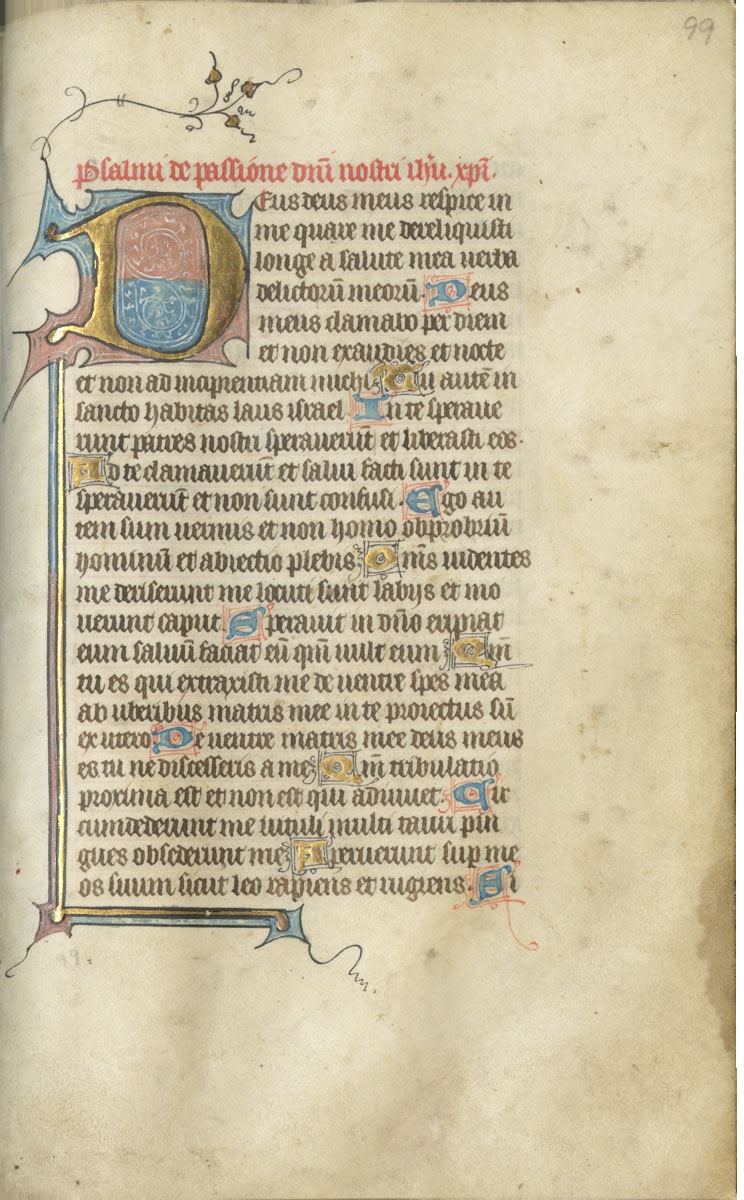 99
Psalmi de passione dñi nostri ihũ. xpĩ.
DEus deus meus respice in
me quare me dereliquisti
longe a salute mea uerba
delictorũ meorũ. Deus
meus clamabo per diem
et non exaudies et nocte
et non ad incipientiam michi Tu autẽ in
sancto habitas laus israel. In te speraue
runt patres nostri sperauerũt et liberasti eos.
Ad te clamauerũt et salui facti sunt in te
sperauerũt et non sunt confusi. Ego au
tem sum uermis et non homo obprobriũ
hominũ et abiectio plebis Om̃s uidentes
me deriserunt me locuti sunt labijs et mo
uerunt caput. Sperauit in dño eripiat
eum saluũ faciat eũ qñi uult eum Qm̃
tu es qui extraxisti me de uentre spes mea
ab uberibus matris mee in te proiectus sũ
ex utero De uentre matris mee deus meus
es tu ne discesseris a me Qm̃ tribulatio
proxima est et non est qui adiuuet. Cir
cumdederunt me uituli multi tauri pin
gues obsederunt me Aperuerunt sup me
os suum sicut leo rapiens et rugiens. Si
99